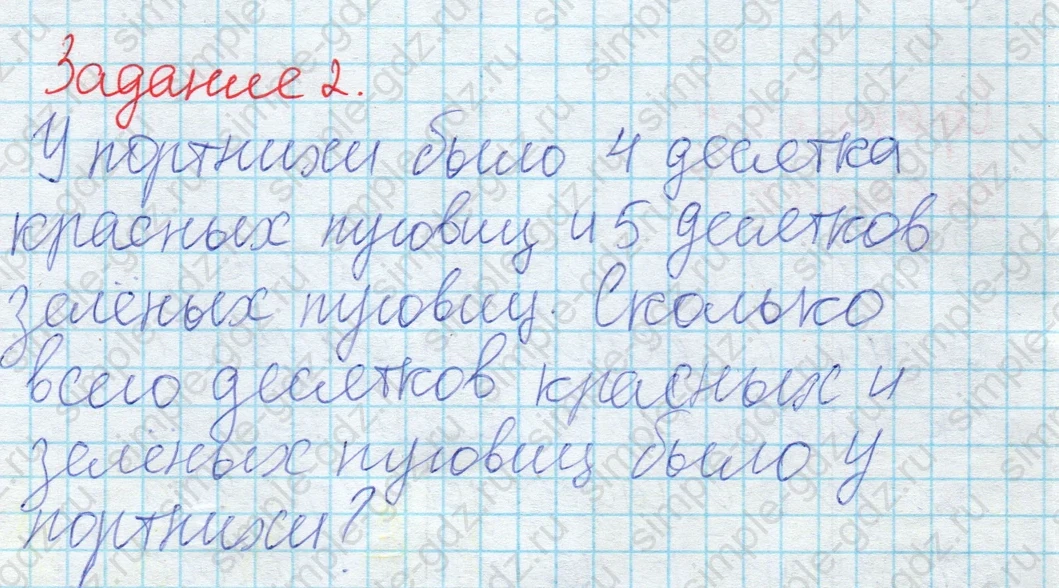 Задание 2.
У портнихи было 4 десятка
красных пуговиц и 5 десятков
зелёных пуговиц. Сколько
всего десятков красных и
зелёных пуговиц было у
портнихи?
simple-gdz.ru